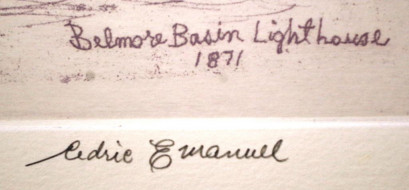 Belmore Basin Lighthouse
1871
Cedric Emanuel